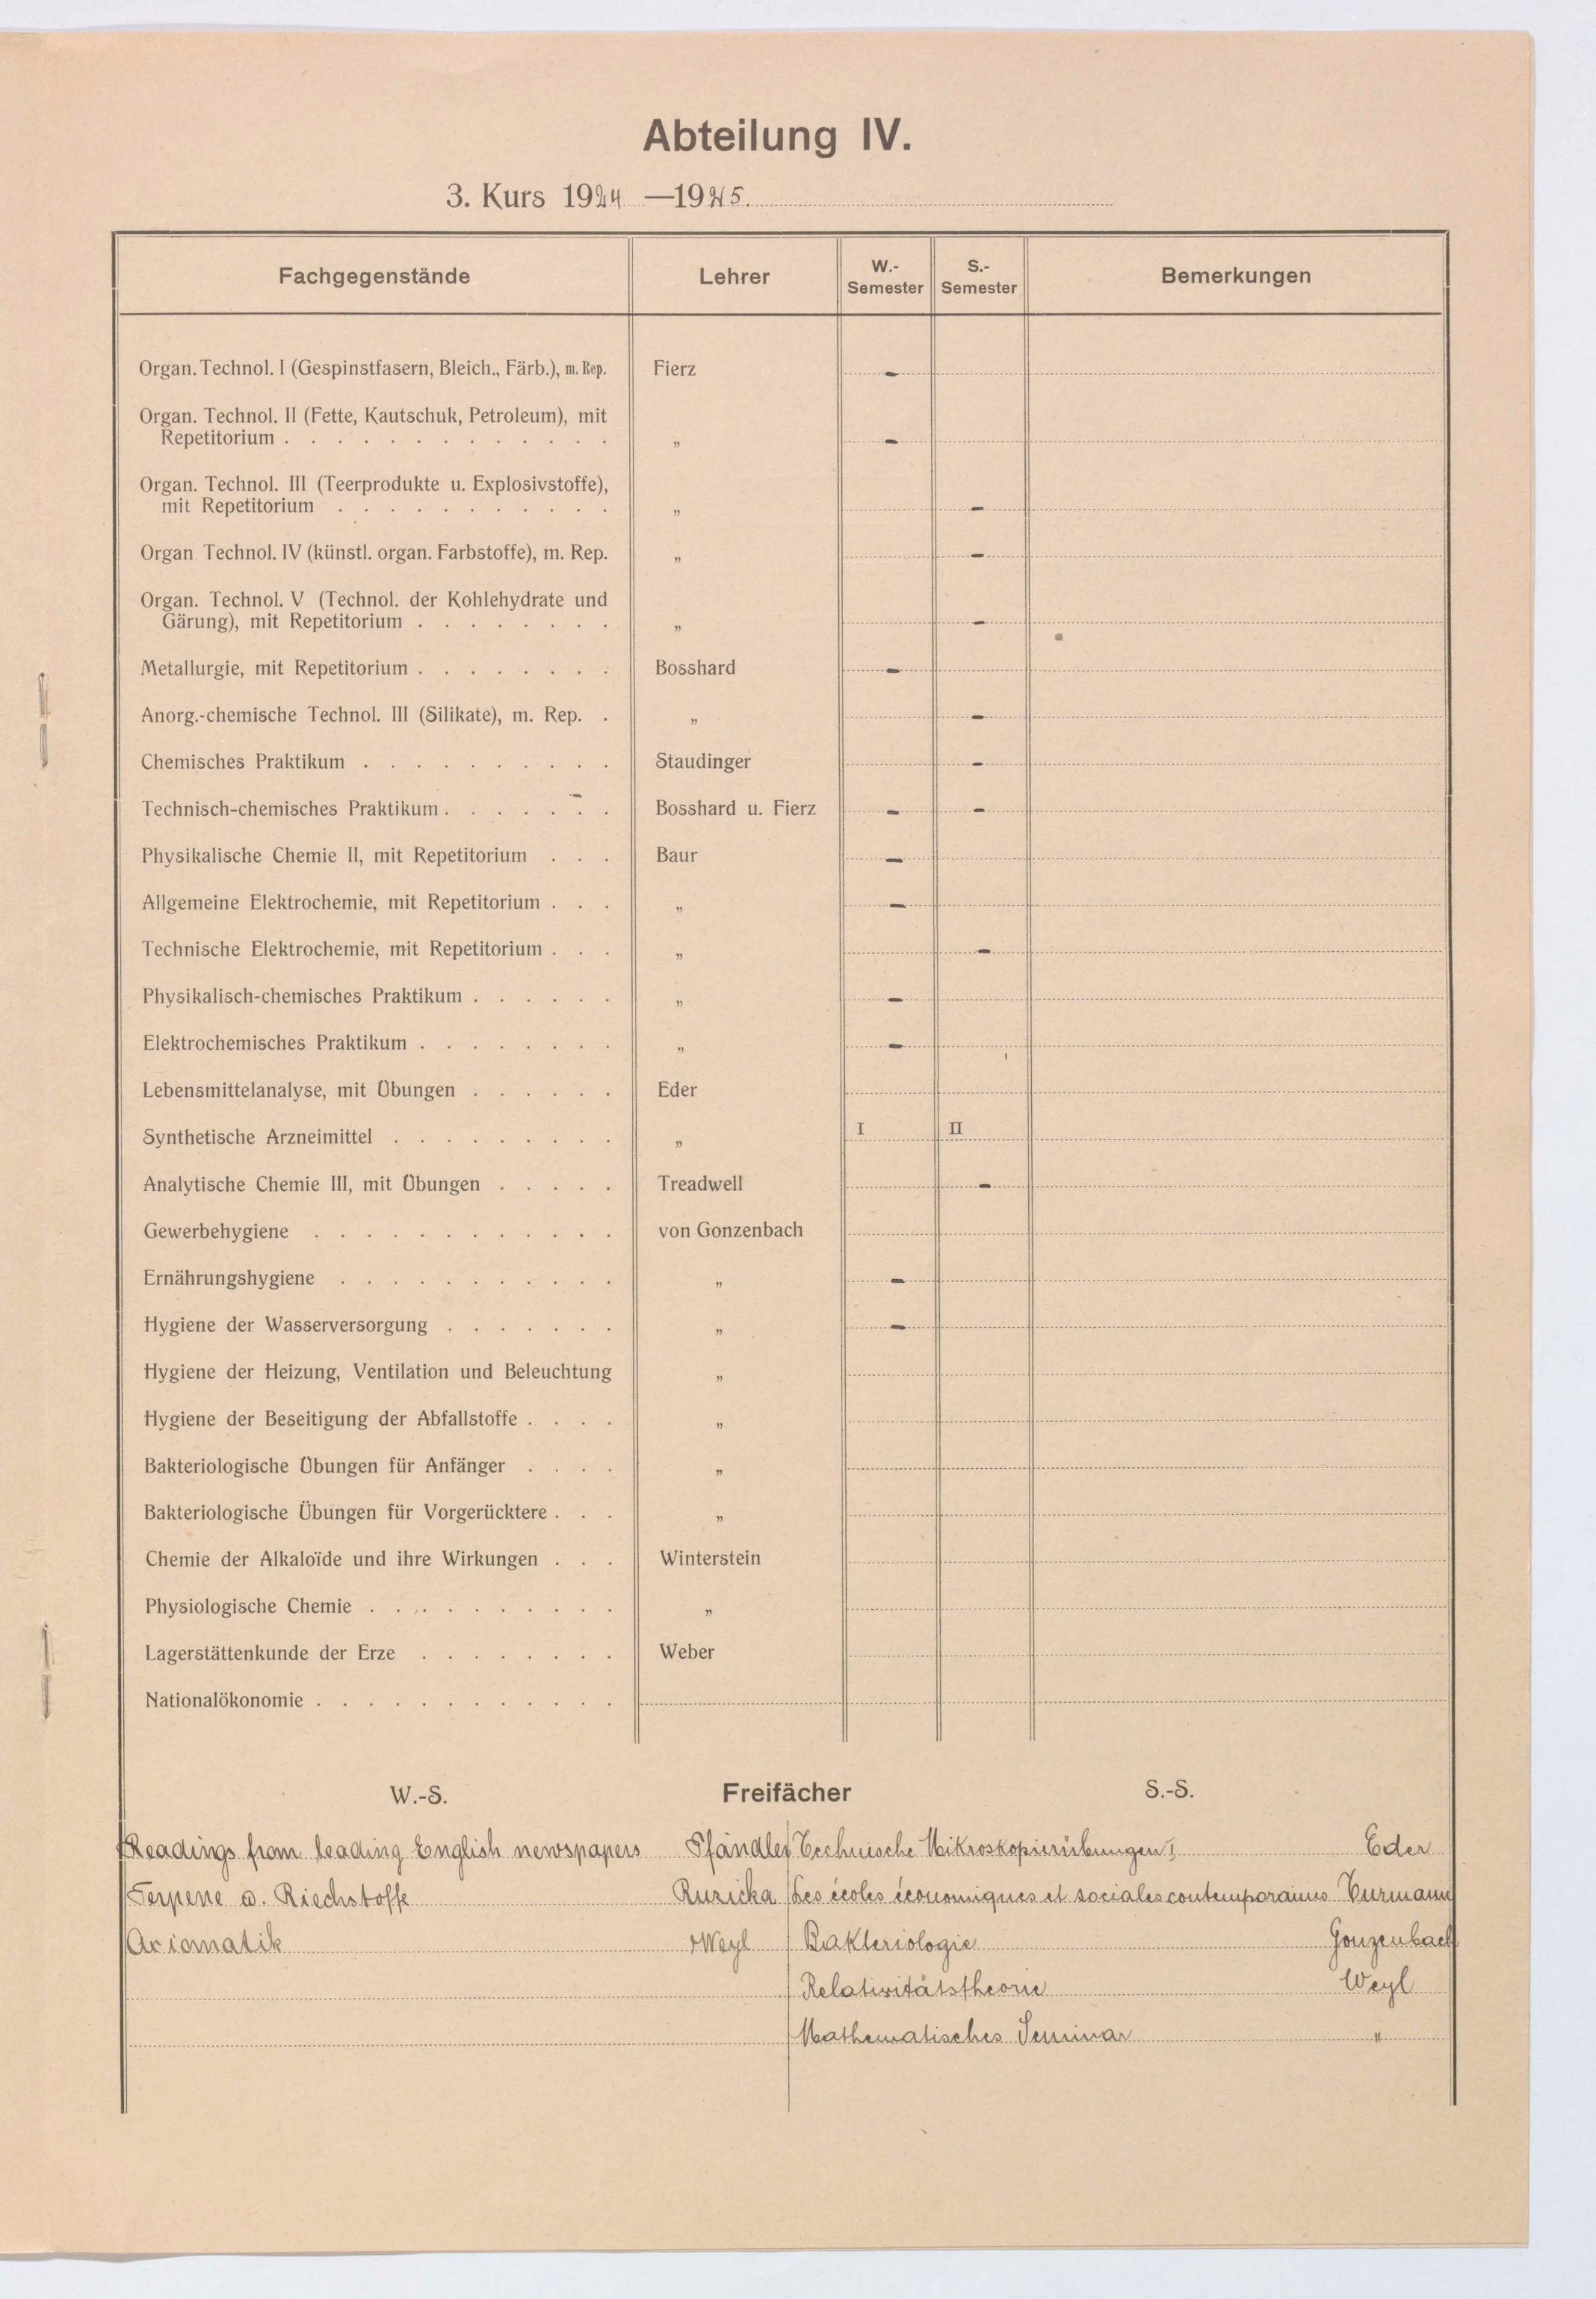 Abteilung IV.
3. Kurs 1924 —1925.
Fachgegenstände Lehrer W.-Semester S.-Semester Bemerkungen
Organ. Technol. I (Gespinstfasern, Bleich., Färb.), m. Rep. Fierz -
Organ. Technol. II (Fette, Kautschuk, Petroleum), mit
Repetitorium . . . . . . . . . . . . . „ -
Organ. Technol. III (Teerprodukte u. Explosivstoffe),
mit Repetitorium . . . . . . . . . . . „ -
Organ. Technol. IV (künstl. organ. Farbstoffe), m. Rep. „ -
Organ. Technol. V (Technol. der Kohlehydrate und
Gärung), mit Repetitorium . . . . . . . . „ -
Metallurgie, mit Repetitorium . . . . . . . . Bosshard -
Anorg.-chemische Technol. III (Silikate), m. Rep. . „ -
Chemisches Praktikum . . . . . . . . . . Staudinger -
Technisch-chemisches Praktikum . . . . . . . Bosshard u. Fierz - -
Physikalische Chemie II, mit Repetitorium . . . Baur -
Allgemeine Elektrochemie, mit Repetitorium . . . „ -
Technische Elektrochemie, mit Repetitorium . . . „ -
Physikalisch-chemisches Praktikum . . . . . . „ -
Elektrochemisches Praktikum . . . . . . . . „ -
Lebensmittelanalyse, mit Übungen . . . . . . Eder
Synthetische Arzneimittel . . . . . . . . . „ I II
Analytische Chemie III, mit Übungen . . . . . Treadwell -
Gewerbehygiene . . . . . . . . . . . . von Gonzenbach
Ernährungshygiene . . . . . . . . . . . „ -
Hygiene der Wasserversorgung . . . . . . . „ -
Hygiene der Heizung, Ventilation und Beleuchtung „
Hygiene der Beseitigung der Abfallstoffe . . . . „
Bakteriologische Übungen für Anfänger . . . . „
Bakteriologische Übungen für Vorgerücktere . . . „
Chemie der Alkaloïde und ihre Wirkungen . . . Winterstein
Physiologische Chemie . . . . . . . . . . „
Lagerstättenkunde der Erze . . . . . . . . Weber
Nationalökonomie . . . . . . . . . . . .
W.-S. Freifächer S.-S.
Readings from leading English newspapers Pfändler Technische Mikroskopierübungen I Eder
Terpene u. Riechstoffe Ruzicka Les écoles économiques et sociales contemporaines Turmann
Axiomatik Weyl Bakteriologie Gonzenbach
Relativitätstheorie Weyl
Mathematisches Seminar "